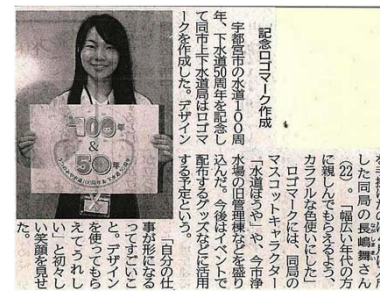 記念ロゴマーク作成
宇都宮市の水道100周
年、下水道50周年を記念し
て同市上下水道局はロゴマ
ークを作成した。デザイン
した同局の長嶋舞さん
(22)。「幅広い年代の方
に親しんでもらえるよう
カラフルな色使いにした」
ロゴマークには、同局の
マスコットキャラクター
「水道ぼうや」や、今市浄
水場の旧管理棟などを盛り
込んだ。今後はイベントで
配布するグッズなどに活用
する予定という。
「自分の仕
事が形になる
ってすごいこ
と。デザイン
を使ってもら
えてうれし
い」と初々し
い笑顔を見せ
た。
100年
&
50年